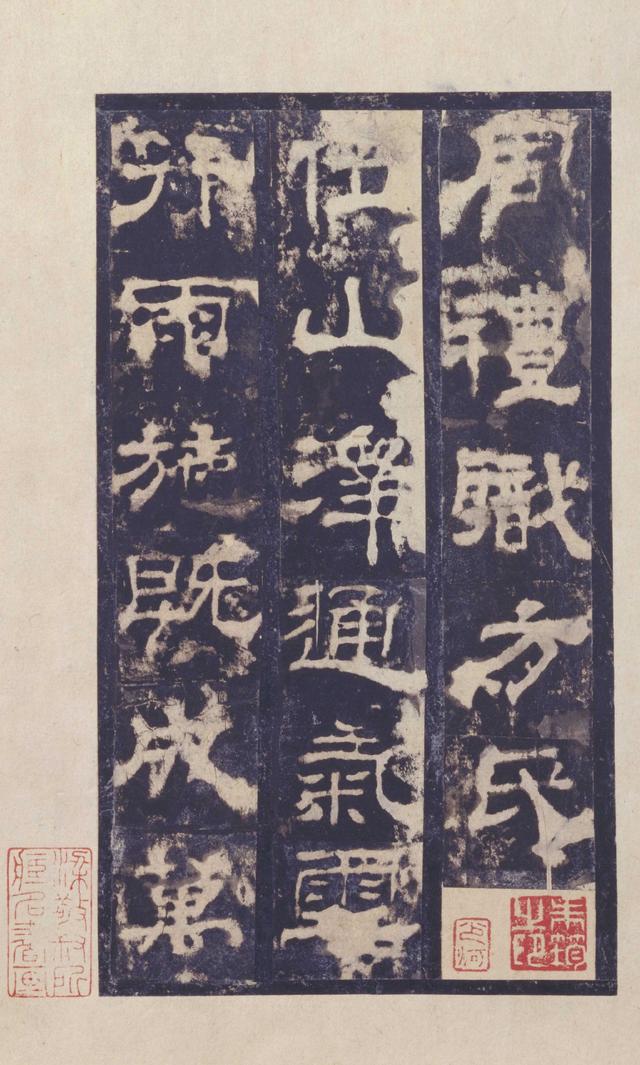 周禮職方氏
位山澤通氣雲
行雨施既成萬